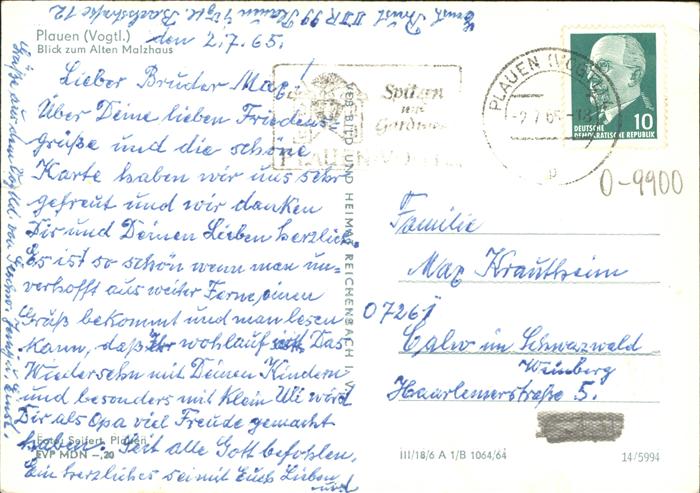 Ernst Prüst DDR 99 Plauen i/Vogtl. Bachstraße 12
Plauen (Vogtl.)
Blick zum Alten Malzhaus
den 2.7.65.
Lieber Bruder Max!
Über Deine lieben Friedens-
grüße und die schöne
Karte haben wir uns sehr
gefreut und wir danken
Dir und Deinen Lieben herzlich.
Es ist so schön wenn man un-
verhofft aus weiter Ferne, einen
Gruß bekommt und man lesen
kann, daß Ihr wohlauf seit. Das
Wiedersehn mit Deinen Kindern
und besonders mit Klein Uli wird
Dir als Opa viel Freude gemacht
haben. Seit alle Gott befohlen,
Ein herzliches sei mit Euch Lieben
und
Grüße aus dem Vogtld. von Ernst.
Foto: Seifert, Plauen
EVP MDN –,20
VEB BILD UND HEIMAT REICHENBACH I. V.
Spitzen
und
Gardinen
PLAUEN (VOGTL)
PLAUEN (VOGTL)
-2.7.65-18
DEUTSCHE
DEMOKRATISCHE REPUBLIK
10
0-9900
Familie
Max Krautheim
07261
Calw im Schwarzwald
Wimberg
Haarlemerstraße 5.
III/18/6 A 1/B 1064/64
14/5994